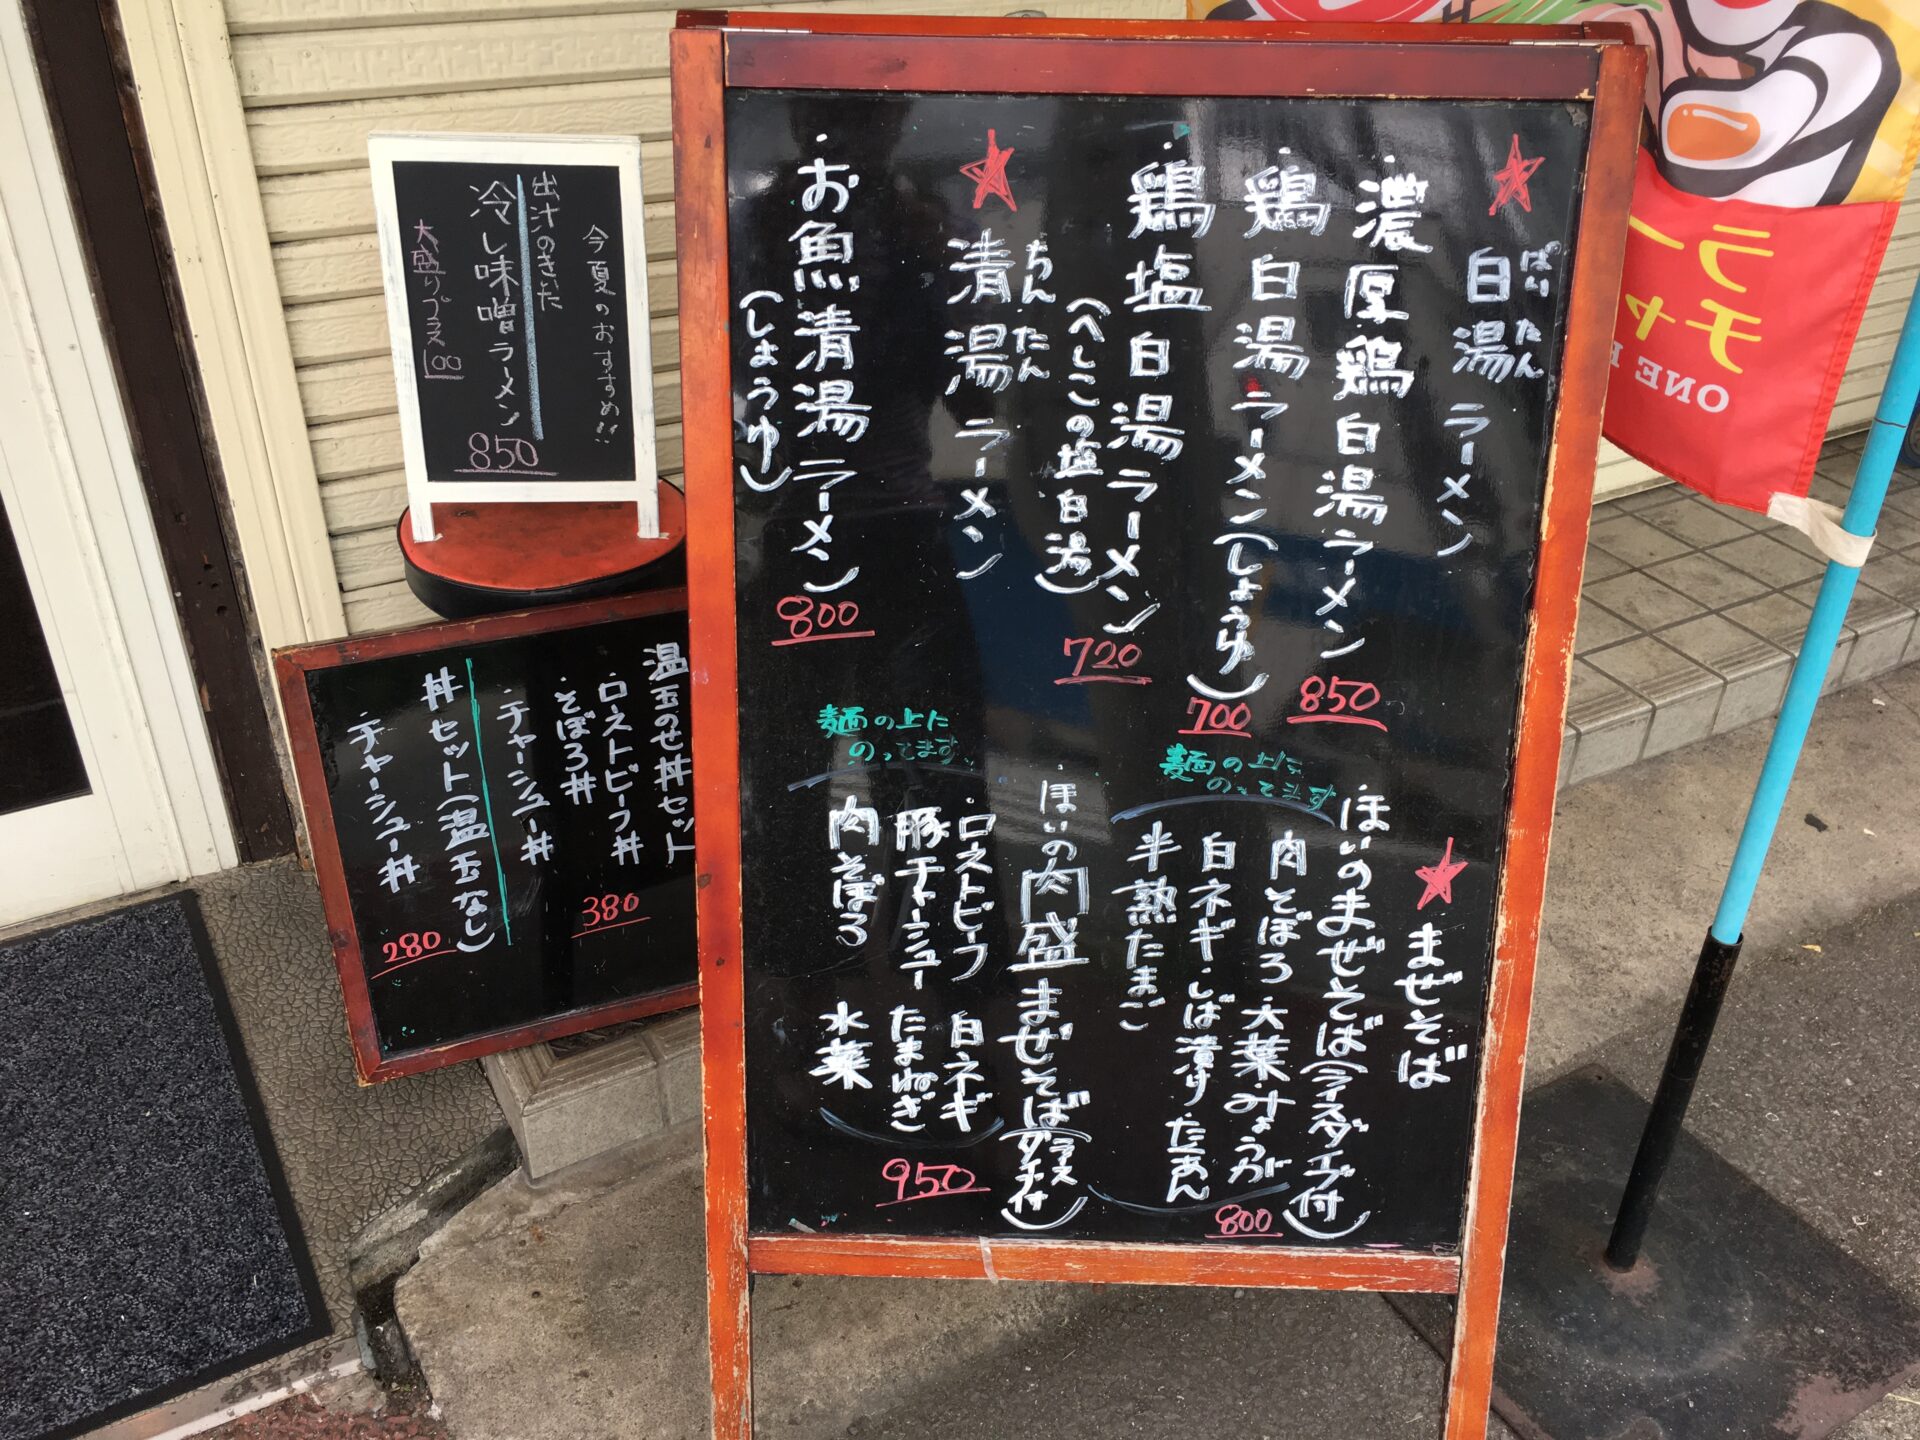 今夏のおすすめ!!
出汁のきいた
冷し味噌ラーメン
850
大盛りプラス
100
温玉のせ丼セット
・ローストビーフ丼
・そぼろ丼
・チャーシュー丼
380
丼セット(温玉なし)
・チャーシュー丼
280
★白湯ラーメン
ぱいたん
・濃厚鶏白湯ラーメン
850
・鶏白湯ラーメン(しょうゆ)
700
・鶏塩白湯ラーメン
(へしこの塩白湯)
720
★清湯ラーメン
ちんたん
・お魚清湯ラーメン
(しょうゆ)
800
★まぜそば
・ほいのまぜそば(ライスダイブ付)
麺の上に
のってます
肉そぼろ 大葉・みょうが
白ネギ・しば漬け たあん
半熟たまご
800
・ほいの肉盛まぜそば(ライスダイブ付)
麺の上に
のってます
・ローストビーフ 白ネギ
豚チャーシュー たまねぎ
肉そぼろ 水菜
950
ラー
チャ
ONE